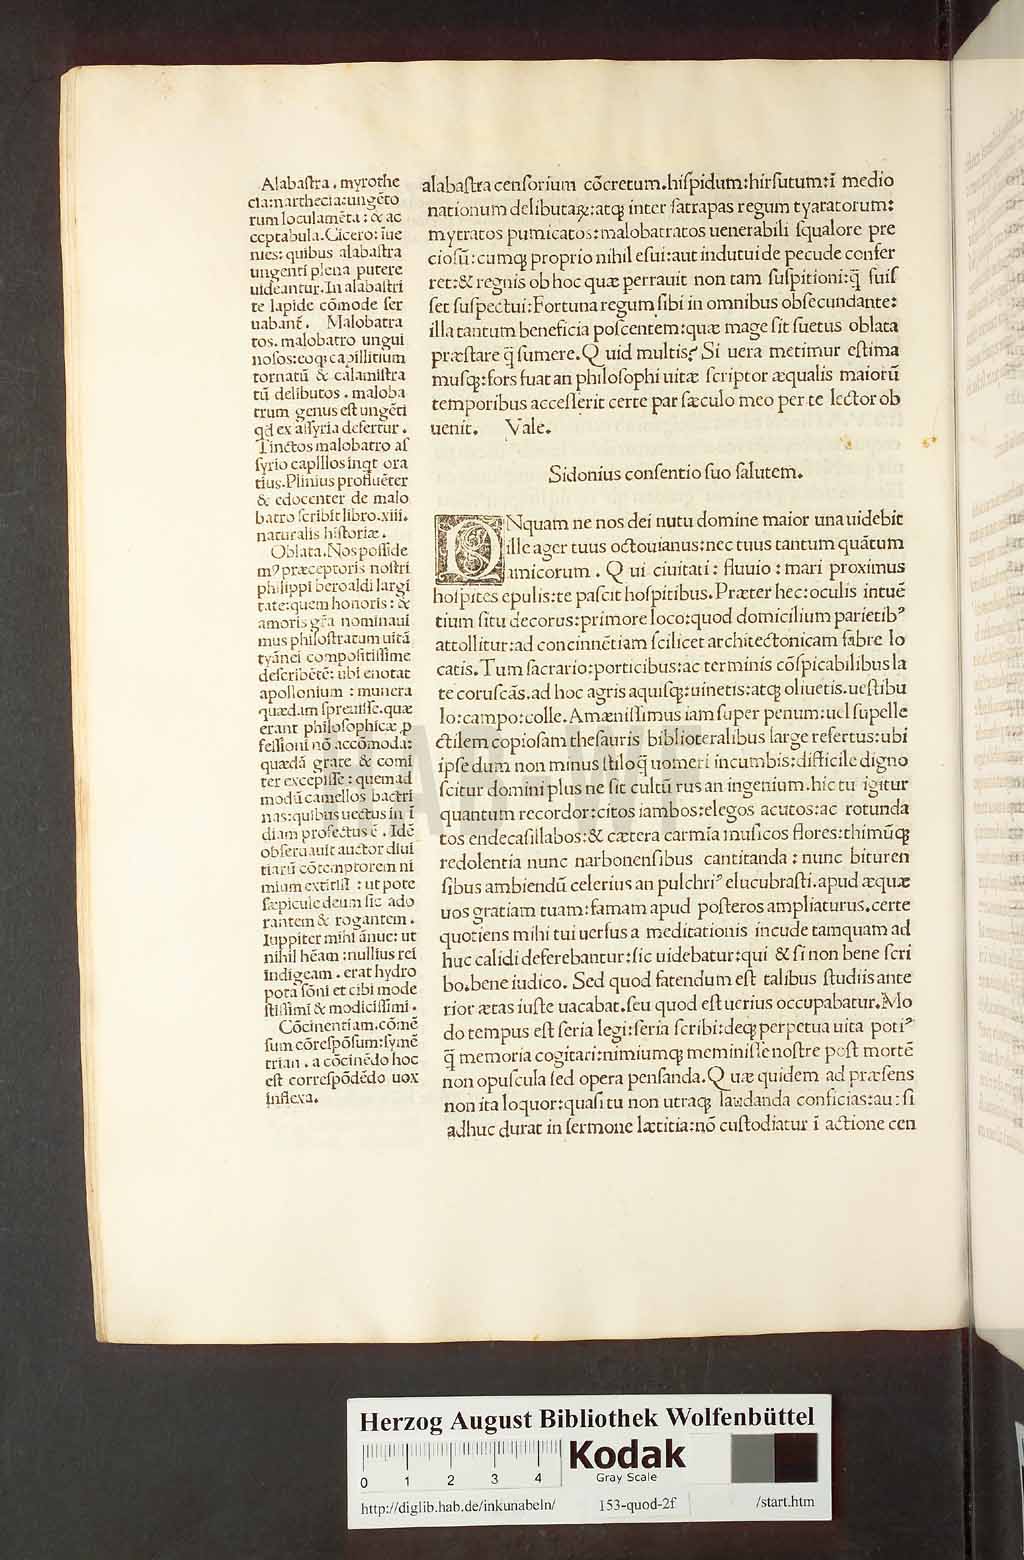 Alabaſtra . myrothe
cia:narthecia:ungēto
rum loculamēta : & ac
ceptabula.Cicero: īue
nies: quibus alabaſtra
ungenti plena putere
uideantur.In alabaſtri
te lapide cōmode ſer
uabant̄. Malobatra
tos. malobatro ungui
noſos:eoq; capillitium
tornatū & calamiſtra
tū delibutos . maloba
trum genus eſt ungēti
qđ ex aſſyria defertur .
Tinctos malobatro aſ
ſyrio capillos inqt ora
tius.Plinius profluēter
& edocenter de malo
batro ſcribit libro.xiii.
naturalis hiſtoriæ .
Oblata. Nos poſſide
mꝰ præceptoris noſtri
philippi beroaldi largi
tate:quem honoris : &
amoris gr̄a nominaui
mus philoſtratum uitā
tyānei compoſitiſſime
deſcribētē: ubi enotat
apollonium : munera
quædam ſpreuiſſe.quæ
erant philoſophicæ p̱
feſſioni nō accōmoda:
quædā grate & comi
ter excepiſſe : quemad
modū camellos bactri
nas:quibus uectus in ī
diam profectus ē . Idē
obſeruauit auctor diui
tiarū cōtemptorem ni
mium extitiſſe : ut pote
ſæpicule deum ſic ado
rantem & rogantem .
Iuppiter mihi ānue: ut
nihil hēam :nullius rei
indigeam . erat hydro
pota ſōni et cibi mode
ſtiſſimi & modiciſſimi .
Cōcinentiam.cōmē
ſum cōreſpōſum:ſymē
trian . a cōcinēdo hoc
eſt correſpōdēdo uox
inflexa.
alabaſtra cenſorium cōcretum.hiſpidum:hirſutum:ī medio
nationum delibutaꝝ:atq; inter ſatrapas regum tyaratorum:
mytratos pumicatos:malobatratos uenerabili ſqualore pre
cioſū:cumq; proprio nihil eſui:aut indutui de pecude confer
ret:& regnis ob hoc quæ perrauit non tam ſuſpitioni:q̄ fuiſ
ſet ſuſpectui:Fortuna regum ſibi in omnibus obſecundante:
illa tantum beneficia poſcentem:quæ mage ſit ſuetus oblata
præſtare q̄ ſumere.Quid multis? Si uera metimur eſtima
muſq;:fors fuat an philoſophi uitæ ſcriptor æqualis maiorū
temporibus acceſſerit certe par ſæculo meo per te lector ob
uenit. Vale.
Sidonius conſentio ſuo ſalutem.
UNquam ne nos dei nutu domine maior una uidebit
ille ager tuus octouianus:nec tuus tantum quātum
amicorum . Qui ciuitati : fluuio : mari proximus
hoſpites epulis:te paſcit hoſpitibus.Præter hec:oculis intuē
tium ſitu decorus:primore loco:quod domicilium parietibꝰ
attollitur:ad concinnētiam ſcilicet architectonicam fabre lo
catis.Tum ſacrario:porticibus:ac terminis cōſpicabilibus la
te coruſcās.ad hoc agris aquiſq;:uinetis:atq; oliuetis.ueſtibu
lo:campo:colle. Amæniſſimus iam ſuper penum:uel ſupelle
ctilem copioſam theſauris biblioteralibus large refertus:ubi
ipſe dum non minus ſtiloq̄ uomeri incumbis:difficile digno
ſcitur domini plus ne ſit cultū rus an ingenium.hic tu igitur
quantum recordor:citos iambos:elegos acutos:ac rotunda
tos endecaſillabos:& cætera carmīa muſicos flores:thimūq;
redolentia nunc narbonenſibus cantitanda : nunc bituren
ſibus ambiendū celerius an pulchriꝰ elucubraſti.apud æquæ
uos gratiam tuam:famam apud poſteros ampliaturus.certe
quotiens mihi tui uerſus a meditationis incude tamquam ad
huc calidi deferebantur:ſic uidebatur:qui & ſi non bene ſcri
bo.bene iudico. Sed quod fatendum eſt talibus ſtudiis ante
rior ætas iuſte uacabat.ſeu quod eſt uerius occupabatur.Mo
do tempus eſt ſeria legi:ſeria ſcribi:deq; perpetua uita potiꝰ
q̄ memoria cogitari:nimiumq; meminiſſe noſtre poſt mortē
non opuſcula ſed opera penſanda.Quæ quidem ad præſens
non ita loquor:quaſi tu non utraq; laudanda conficias:au : ſi
adhuc durat in ſermone lætitia:nō cuſtodiatur ī actione cen
HAB-WF
Herzog August Bibliothek Wolfenbüttel
0 1 2 3 4
Kodak
Gray Scale
http://diglib.hab.de/inkunabeln/ 153-quod-2f /start.htm